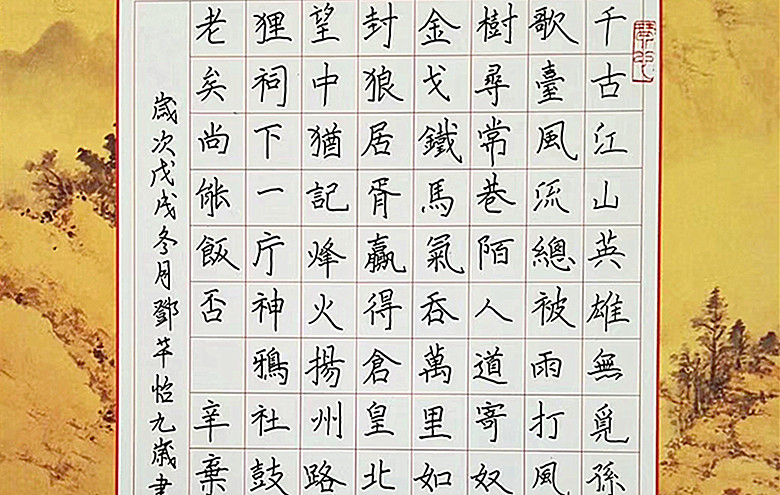 千古江山英雄無覓孫
歌臺風流總被雨打風
樹尋常巷陌人道寄奴
金戈鐵馬氣吞萬里如
封狼居胥贏得倉皇北
望中猶記烽火揚州路
狸祠下一片神鴉社鼓
老矣尚能飯否 辛棄
歲次戊戌冬月鄧芊怡九歲書